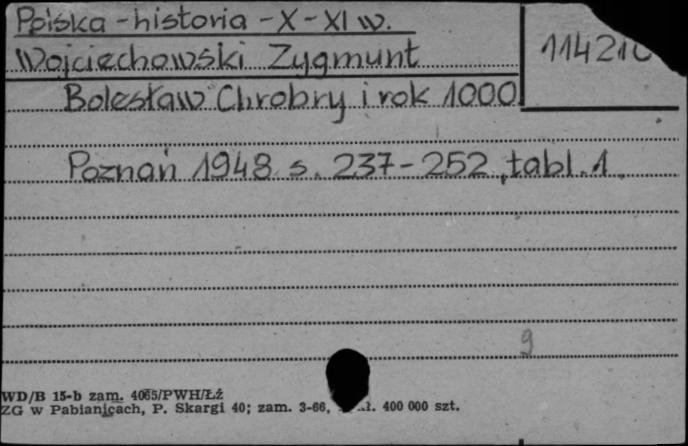 Polska - historia - X - XI w.
Wojciechowski Zygmunt
11421
Bolesław Chrobry i rok 1000
Poznań 1948 s. 237-252, tabl. 1.
9
WD/B 15-b zam. 4065/PWH/Łź
ZG w Pabianicach, P. Skargi 40; zam. 3-66, 400 000 szt.